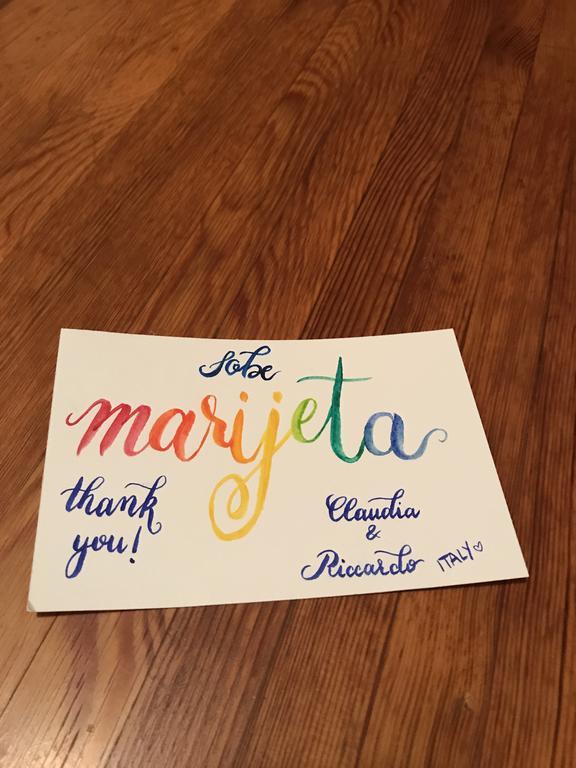 sobe
marijeta
thank
you!
Claudia
&
Riccardo
ITALY♡